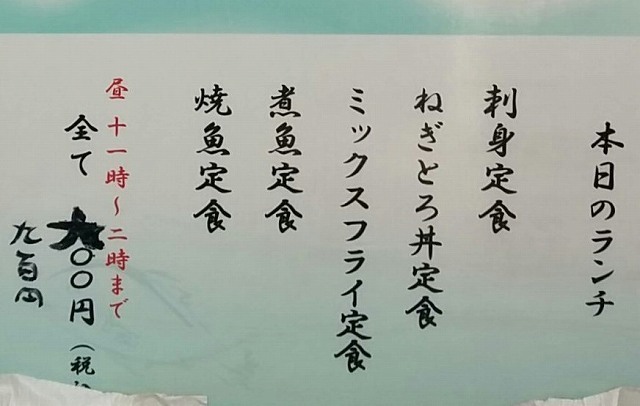 本日のランチ
刺身定食
ねぎとろ丼定食
ミックスフライ定食
煮魚定食
焼魚定食
昼 十一時～二時まで
全て 六〇〇円(税
九百円